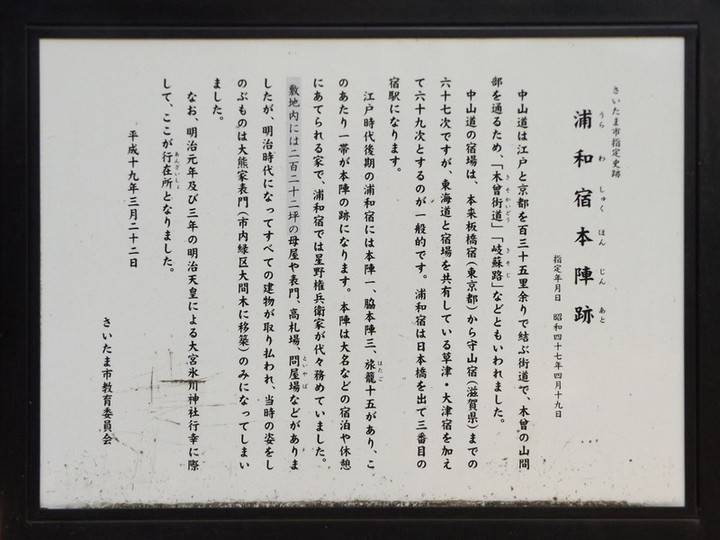 さいたま市指定史跡
浦和宿本陣跡
うらわしゅくほんじんあと
指定年月日 昭和四十七年四月十九日
中山道は江戸と京都を百三十五里余りで結ぶ街道で、木曾の山間
部を通るため、「木曾街道」「岐蘇路」などともいわれました。
きそかいどう きそじ
中山道の宿場は、本来板橋宿(東京都)から守山宿(滋賀県)までの
六十七次ですが、東海道と宿場を共有している草津・大津宿を加え
て六十九次とするのが一般的です。浦和宿は日本橋を出て三番目の
宿駅になります。
江戸時代後期の浦和宿には本陣一、脇本陣三、旅籠十五があり、こ
はたご
のあたり一帯が本陣の跡になります。本陣は大名などの宿泊や休憩
にあてられる家で、浦和宿では星野権兵衛家が代々務めていました。
敷地内には二百二十二坪の母屋や表門、高札場、問屋場などがありま
といやば
したが、明治時代になってすべての建物が取り払われ、当時の姿をし
のぶものは大熊家表門(市内緑区大間木に移築)のみになってしまい
ました。
なお、明治元年及び三年の明治天皇による大宮氷川神社行幸に際
して、ここが行在所となりました。
あんざいしょ
平成十九年三月二十二日
さいたま市教育委員会